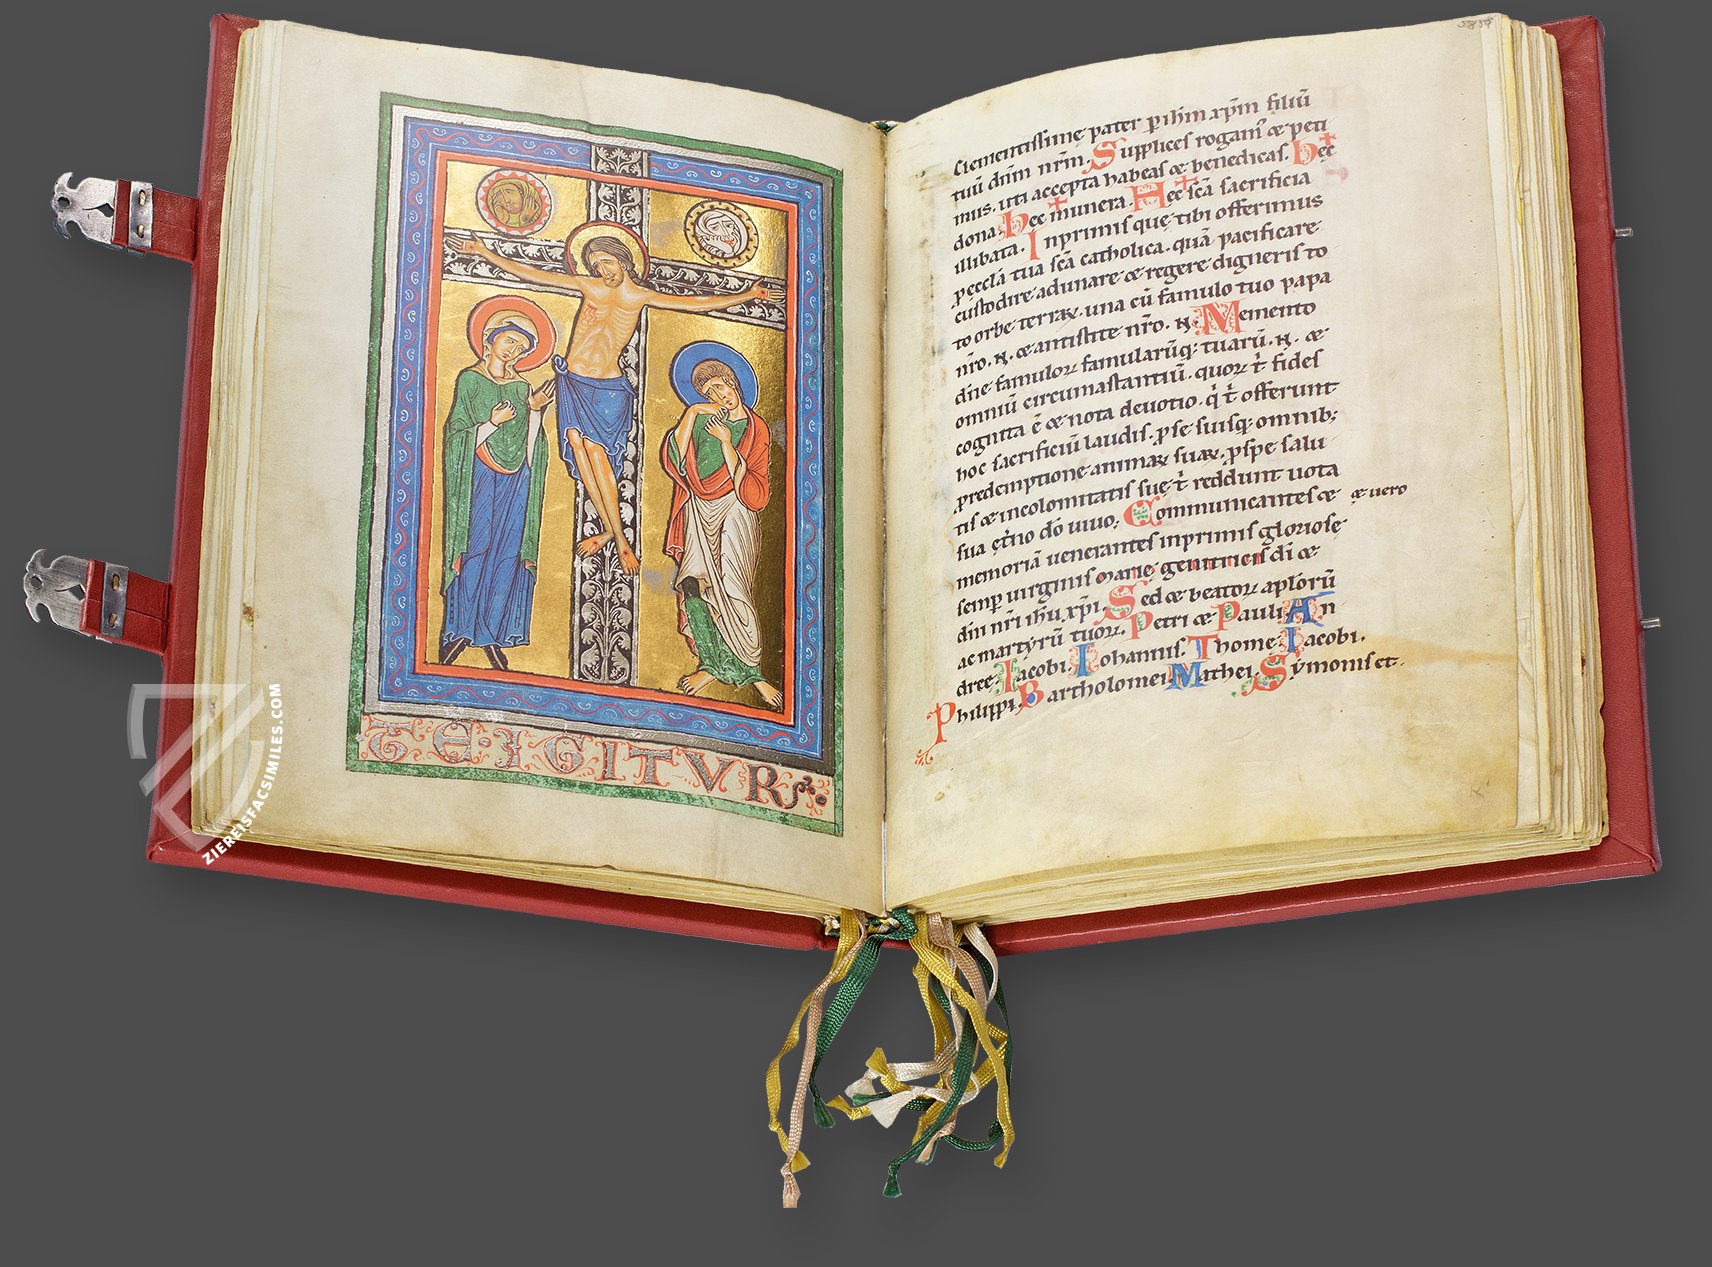 TE·IGITVR
Clementissime pater p ih̄m xp̄m filiū
tuū dn̄m nr̄m. Supplices rogam᾽ & peti
mus. uti accepta habeas & benedicas. hęc
dona. hęc munera. Hęc sc̄a sacrificia
illibata. Inprimis quę tibi offerimus
p ęcclā tua sc̄a catholica. quā pacificare
custodire adunare & regere digneris to
to orbe terraꝝ. una cū famulo tuo papa
nr̄o. N. & antistite nr̄o. N. Memento
dn̄e famuloꝝ famularūq; tuarū. N. &
omniū circumastantiū. quoꝝ t̄ fides
cognita ē & nota deuotio. q̄ t̄ offerunt
hoc sacrificiū laudis. p se suisq; omnib;
p redemptione animaꝝ suaꝝ. p spe salu
tis & incolomitatis suę. t̄ reddunt uota
sua ęt̄no dō uiuo; Communicantes &
& uero
memoriā uenerantes inprimis gloriosę
semp uirginis marię genitricis di̅ &
dn̄i nr̄i ih̄u xp̄i. Sed & beatoꝝ apl̄orū
ac martyrū tuoꝝ. Petri & Pauli. An
dreę. Iacobi. Iohannis. Thome. Iacobi.
Philippi. Bartholomei. Mathei. Sẏmonis et
ZIEREISFACSIMILES.COM